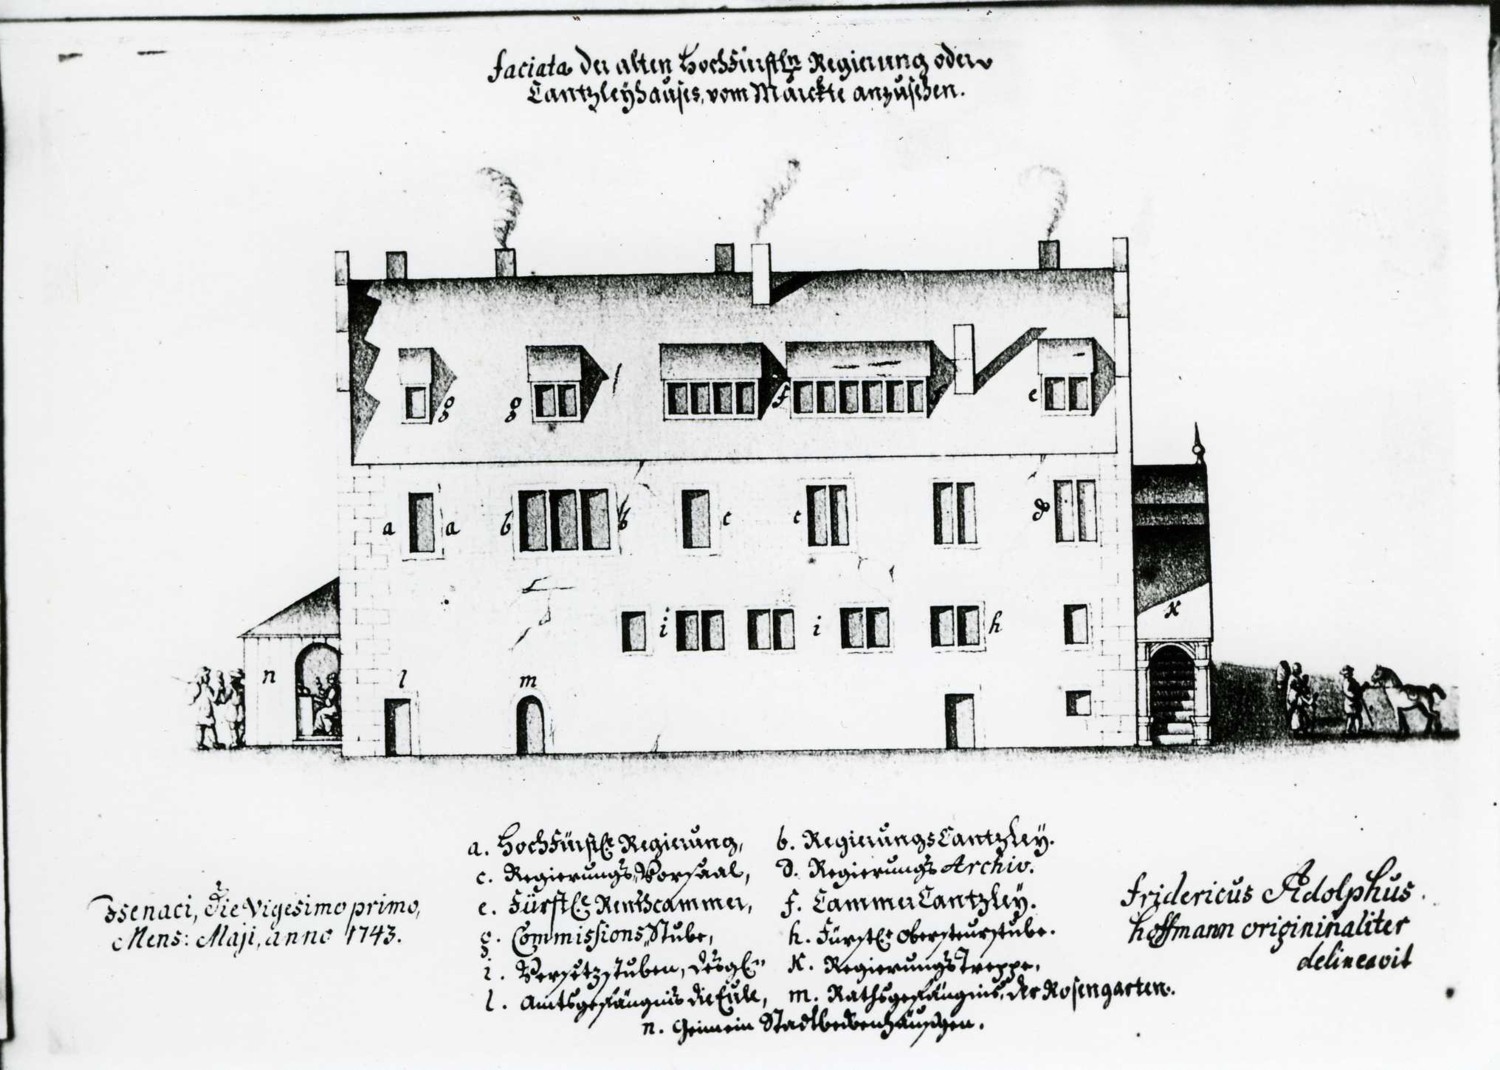 faciata der alten Hochfürstln Regierung oder
Cantzleyhauses, vom Marckte anzusehen.
g
g
f
e
a
a
b
b
c
c
d
i
i
h
K
n
l
m
a. Hochfürstle Regierung,
b. RegierungsCantzley.
c. Regierungs Vorsaal,
d. Regierungs Archiv.
e. Fürstle Rentscammer,
f. CammerCantzley.
g. Commissions Stube,
h. Fürstle Obersteurstube.
i. Versetzstuben,
K. RegierungsTreppe,
l. Amtsgefängnis die Eule,
m. Rathsgefängnis, der Rosengarten.
n. Gemein
Isenaci, die Vigesimo primo,
Mens: Maji, anno 1743.
Fridericus Adolphus
Hoffmann origininaliter
delineavit